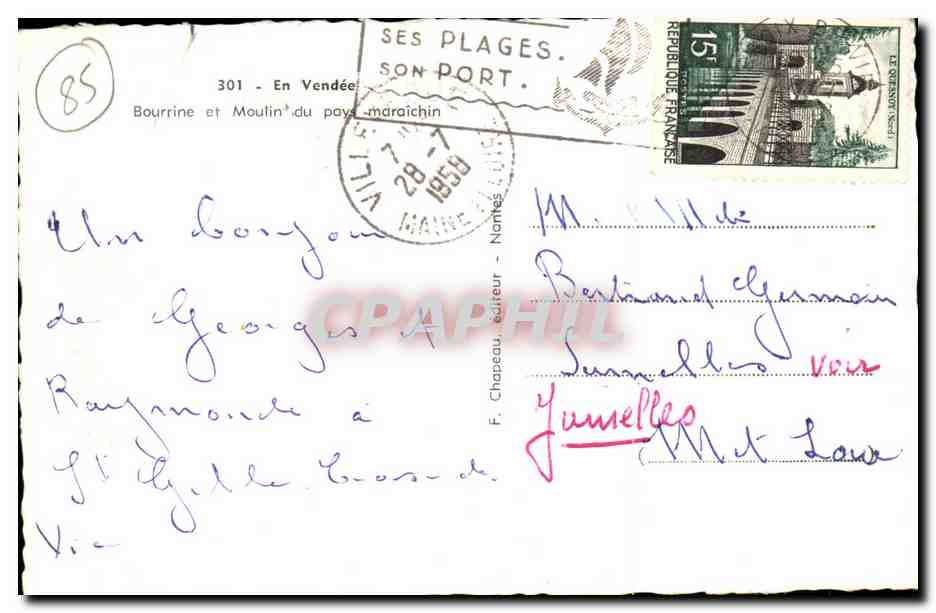 85
301 - En Vendée
Bourrine et Moulin du pays maraîchin
SES PLAGES.
SON PORT.
15F
REPUBLIQUE FRANÇAISE
POSTES
LE QUESNOY (Nord)
28 -7
1958
MAINE ET LOIRE
F. Chapeau, éditeur - Nantes
CPAPHIL
Un bonjour
de Georges &
Raymonde à
St Gille Croas de
Vie
M. & Mde
Bertrand Germain
Sumelles voir
Jumelles
M et Loire